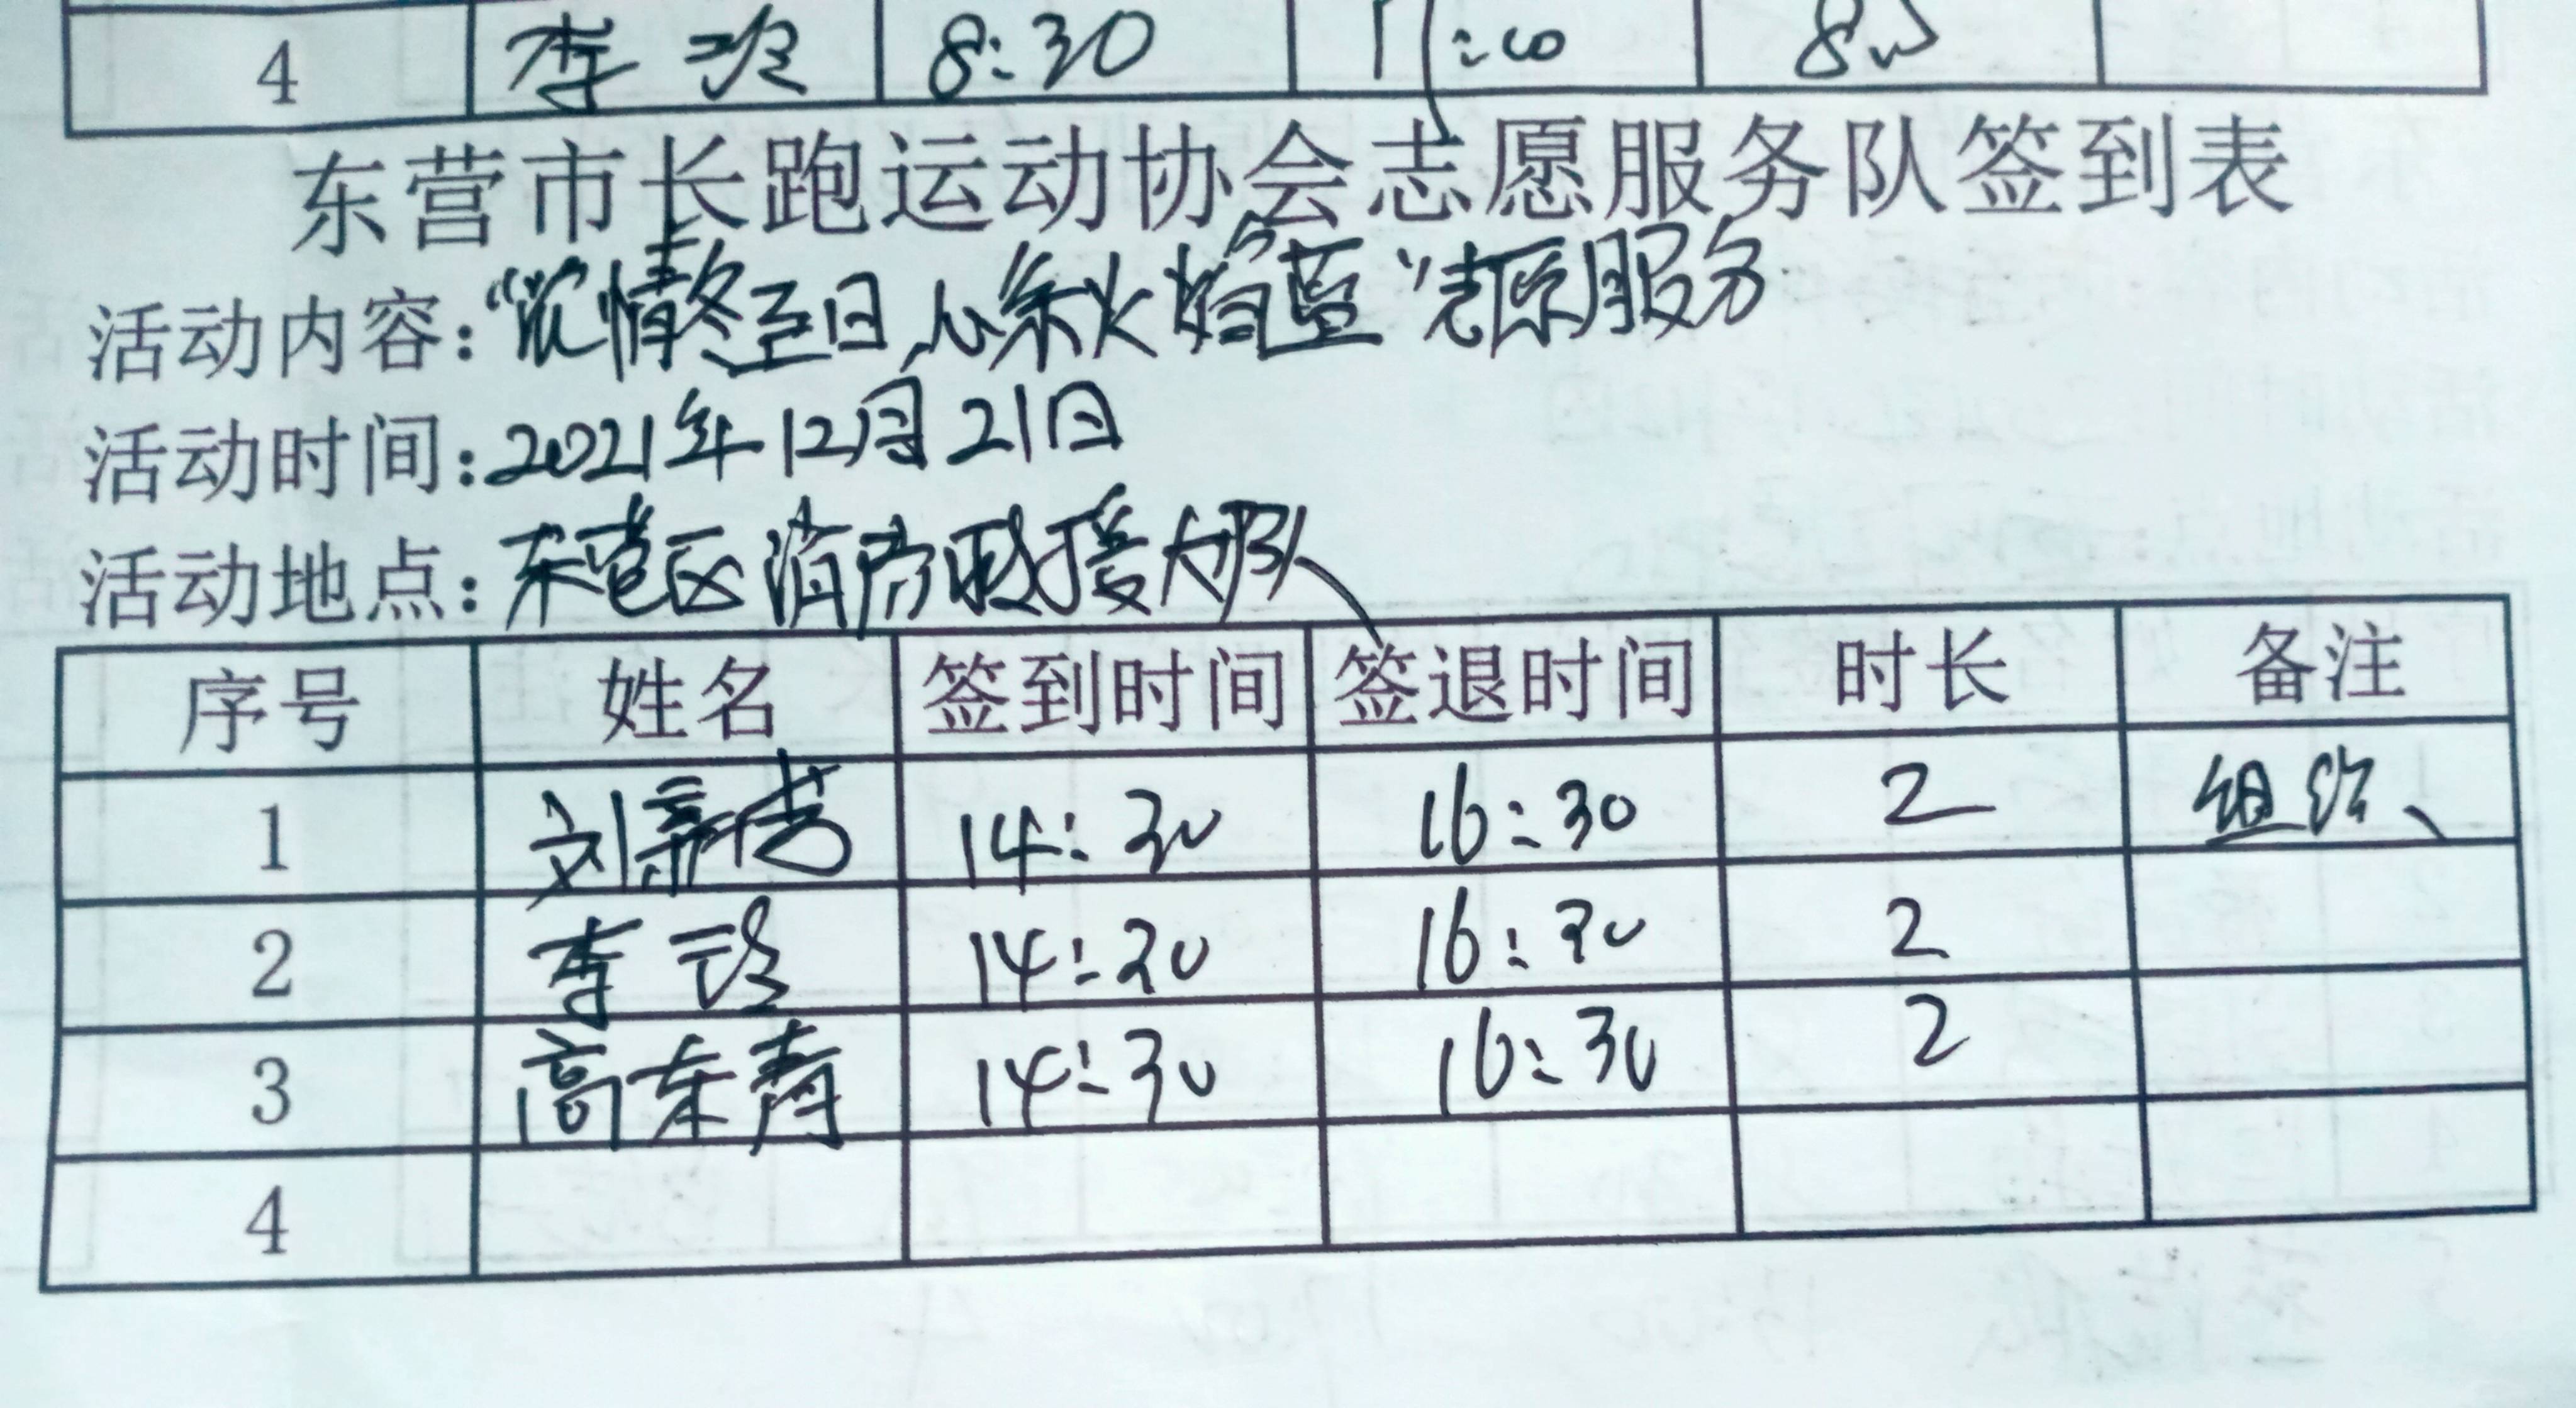 4 李玲 8:30 17:00 8.5
东营市长跑运动协会志愿服务队签到表
活动内容:“浓情冬至日,心系火焰蓝”志愿服务
活动时间:2021年12月21日
活动地点:东营区消防救援大队
序号 姓名 签到时间 签退时间 时长 备注
1 刘 14:30 16:30 2 组织
2 李玲 14:30 16:30 2
3 高东青 14:30 16:30 2
4